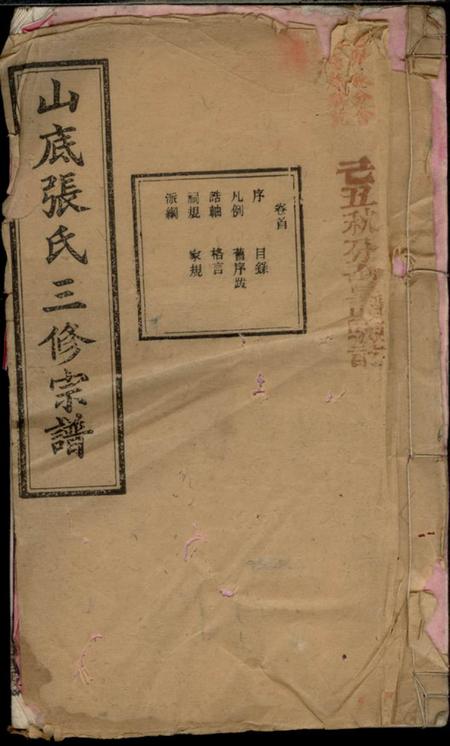 山底張氏三修宗譜
卷首
序 目錄
凡例 舊序跋
誥軸 格言
祠規 家規
派綱
己丑秋分